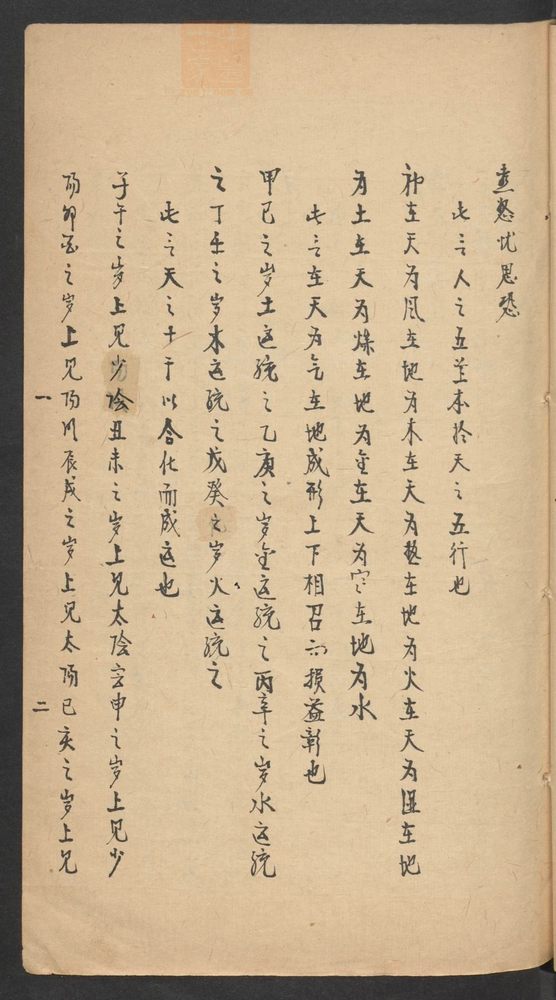 喜怒忧思恐
此言人之五藏本扵天之五行也
神在天为风在地为木在天为热在地为火在天为湿在地
为土在天为燥在地为金在天为寒在地为水
此言在天为气在地成形上下相召而损益彰也
甲己之岁土运统之乙庚之岁金运统之丙辛之岁水运统
之丁壬之岁木运统之戊癸之岁火运统之
此言天之十干以合化而成运也
子午之岁上见少陰丑未之岁上见太陰寅申之岁上见少
阳卯酉之岁上见阳明辰戌之岁上见太阳巳亥之岁上见
一
二